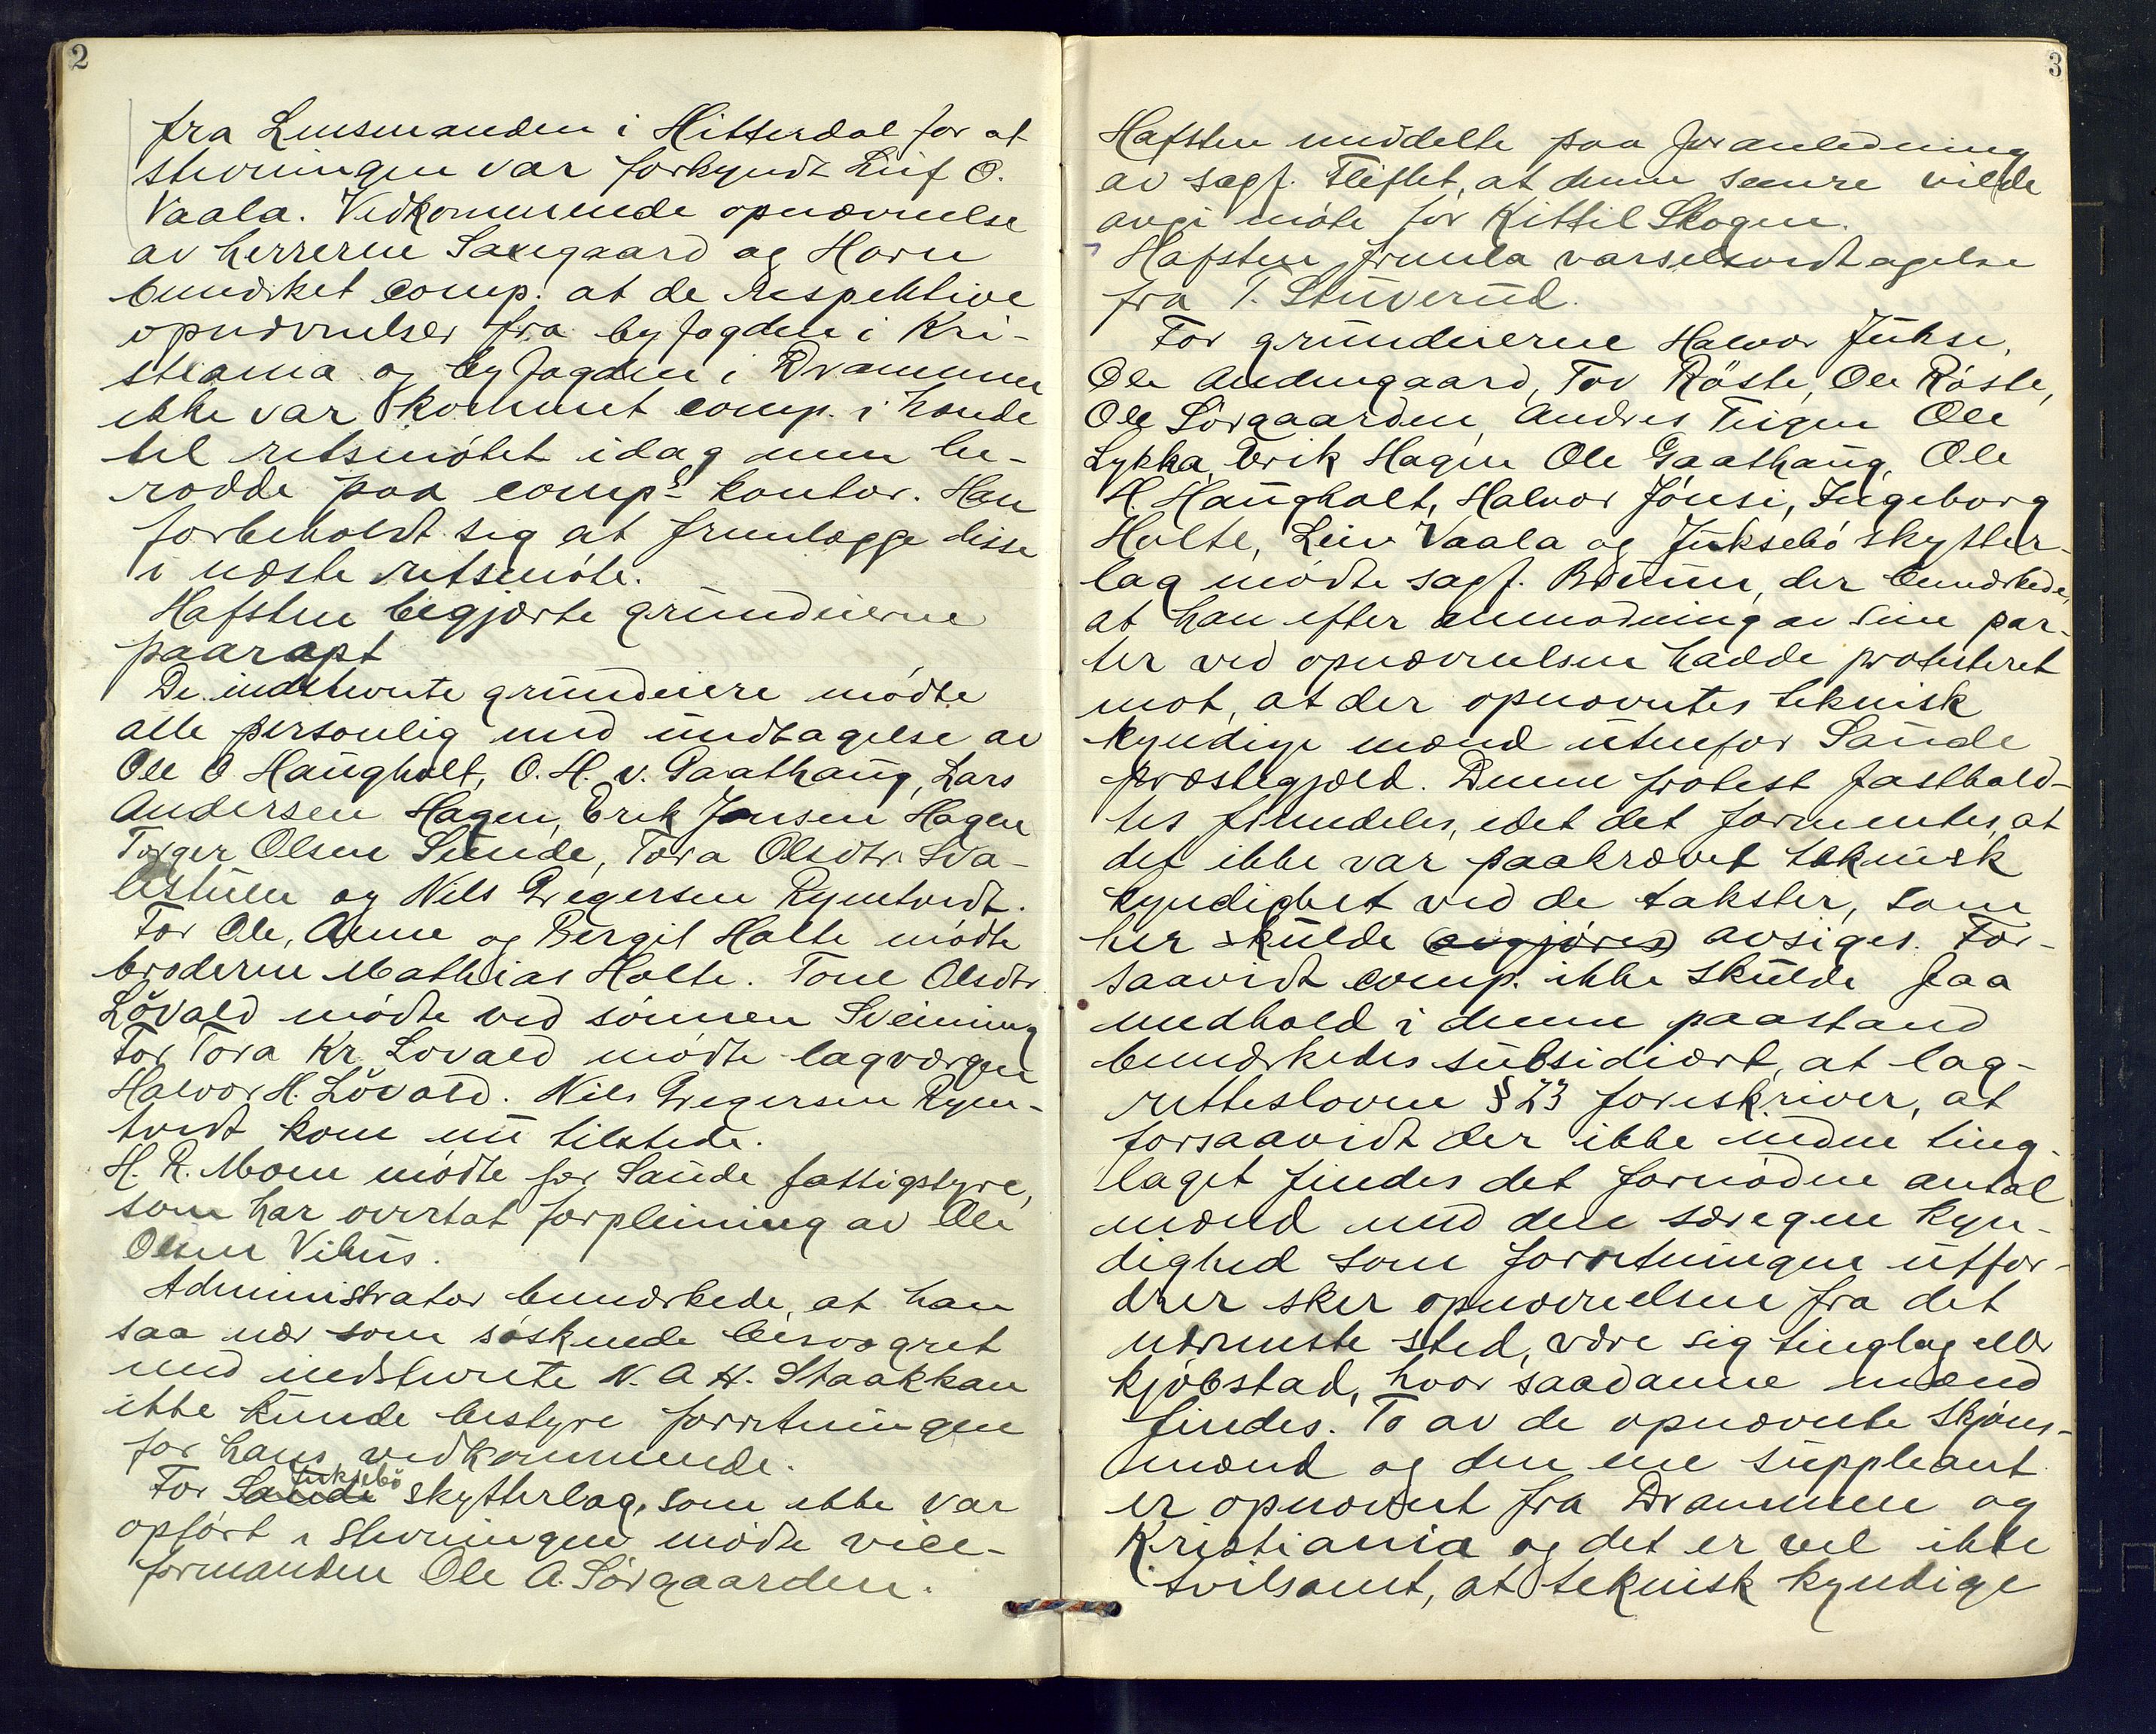 2
fra Lensmanden i Hitterdal for at
stevningen var forkyndt Leif O.
Vaala. Vedkommende opnævnelse
av herrerne Saugaard og Horn
bemærket comp. at de respektive
opnævnelser fra byfogden i Kri-
stiania og byfogden i Drammen
ikke var kommet comp. i hænde
til retsmötet idag men be-
rodde paa comp.s kontor. Han
forbeholdt sig at fremlægge disse
i næste retsmöte.
Hafsten begjærte grundeierne
paaropt
De indstevnte grundeiere mödte
alle personlig med undtagelse av
Ole O Haugholt, O. H. v. Gaathaug, Lars
Andersen Hagen, Erik Jonsen Hagen
Torger Olsen Sunde, Tora Olsdtr. Sva-
lestulen og Nils Gregersen Rymtveidt.
For Ole, Anne og Bergit Holte mödte
broderen Mathias Holte. Tone Olsdtr
Lövald mödte ved sönnen Sveinung
For Tora Kr. Lovald mödte lagværgen
Halvor H. Lövald. Nils Gregersen Rym-
tvedt kom nu tilstede.
H. R. Moen mödte for Saude fattigstyre,
som har overtat forpleining av Ole
Olsen Vibus.
Administrator bemærkede, at han
saa nær som söskende besvogret
med indstevnte N. A H. Staakkan
ikke kunde bestyre forretningen
for hans vedkommende.
Juksebö
For Saude skytterlag, som ikke var
opfört i stevningen mödte vice-
formanden Ole A. Sörgaarden.
3
Hafsten meddelte paa foranledning
av sagf. Fliflet, at denne senere vilde
avgi möte for Kittil Skogen.
Hafsten fremla varselsvedtagelse
fra T. Stuverud.
For grundeierne Halvor Jukse,
Ole Andersgaard, Tov Röste, Ole Röste,
Ole Sörgaarden, Andres Teigen Ole
Lykka, Erik Hagen Ole Gaathaug, Ole
H. Haugholt, Halvor Jönsi, Ingeborg
Holte, Leiv Vaala og Juksebö skytter-
lag mödte sagf. Bruun, der bemærkede,
at han efter anmodning av sine par-
ter ved opnævnelsen hadde protesteret
mot, at der opnævntes teknisk
kyndige mænd utenfor Saude
præstegjæld. Denne protest fasthold-
tes fremdeles, idet det formentes, at
det ikke var paakrævet teknisk
kyndighet ved de takster, som
her skulde (avgjöres) avsiges. For-
saavidt comp. ikke skulde faa
medhold i denne paastand
bemærkedes subsidiært, at lag-
retteloven § 23 foreskriver, at
forsaavidt der ikke inden ting-
laget findes det fornödne antal
mænd med den særegne kyn-
dighed som forretningen utfor-
drer sker opnævnelsen fra det
nærmeste sted, være sig tinglag eller
kjöbstad, hvor saadanne mænd
findes. To av de opnævnte skjöns-
mænd og den ene suppleant
er opnævnt fra Drammen og
Kristiania og det er vel ikke
tvilsomt, at teknisk kyndige